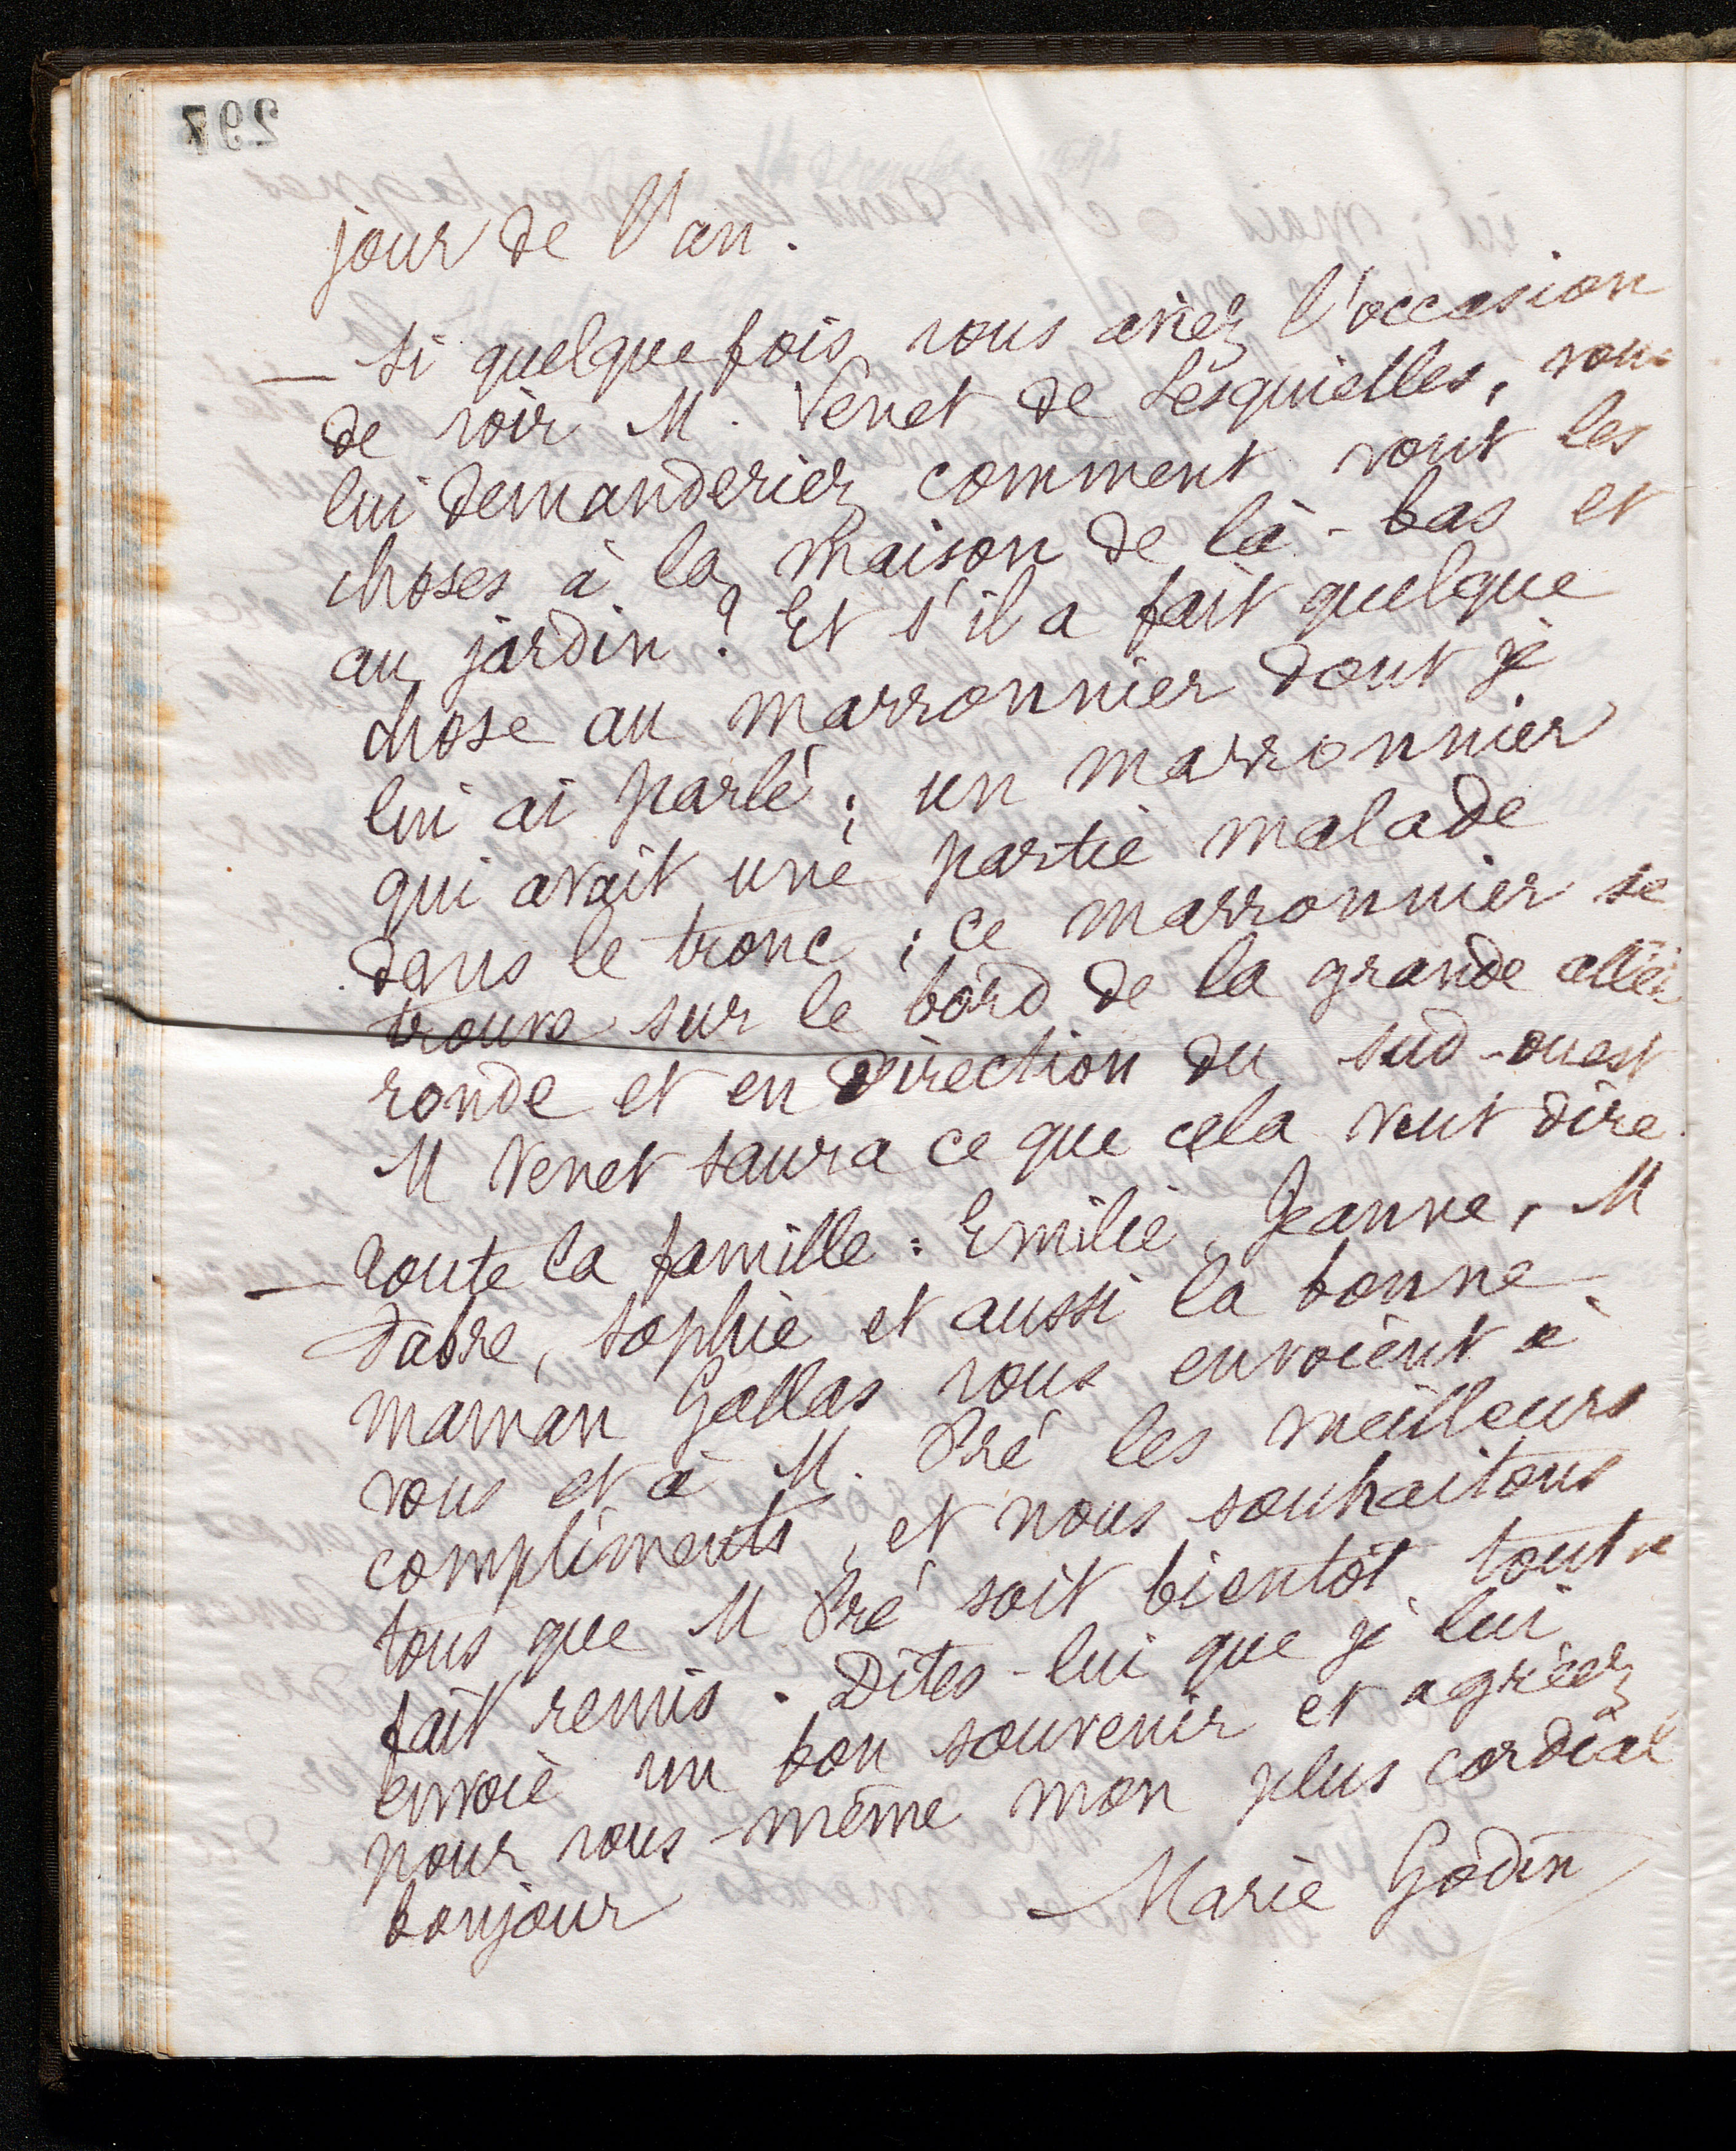 297
jour de l'an.
— Si quelquefois vous aviez l'occasion
de voir M. Venet de Lesquielles, vous
lui demanderiez comment vont les
choses à la maison de là-bas et
au jardin ? Et s'il a fait quelque
chose au marronnier dont je
lui ai parlé ; un marronnier
qui avait une partie malade
dans le tronc ; ce marronnier se
trouve sur le bord de la grande allée
ronde et en direction du sud-ouest
M Venet saura ce que cela veut dire.
— Toute la famille : Emilie, Jeanne, M
Dabre, Sophie et aussi la bonne
maman Gallas vous envoient à
vous et à M. Pré les meilleurs
compliments, et nous souhaitons
tous que M Pré soit bientôt tout à
fait remis. Dites-lui que je lui
envoie un bon souvenir et agréez
pour vous-même mon plus cordial
bonjour
Marie Godin